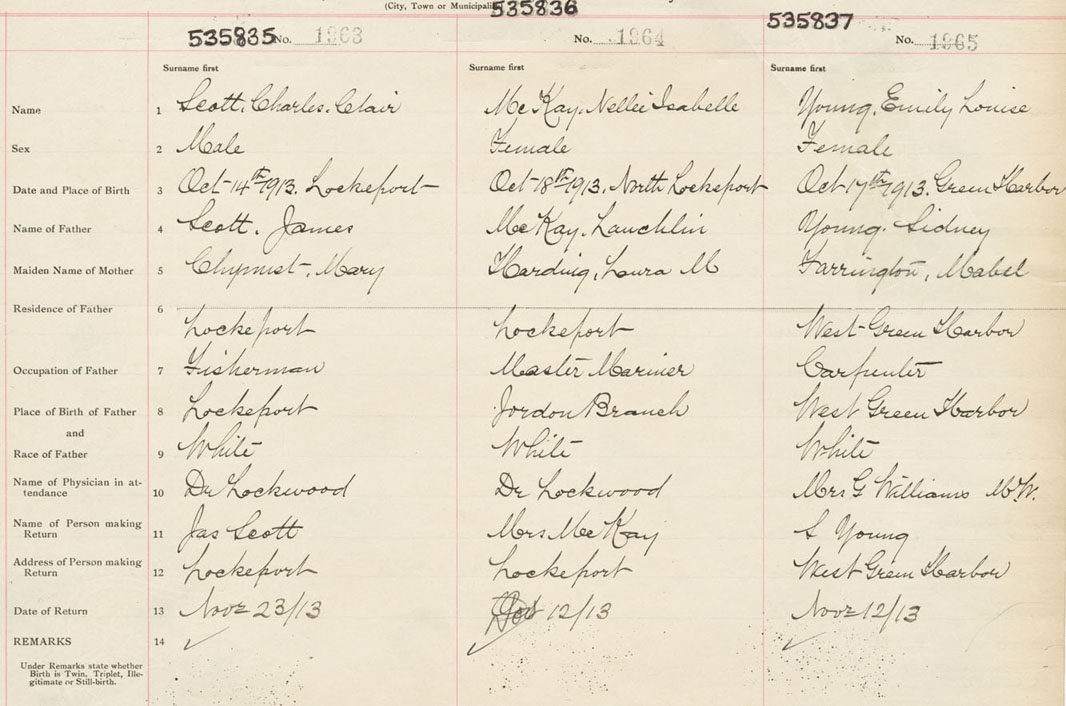 (City, Town or Municipali
535835 No. 1963 535836 No. 1964 535837 No. 1965
Surname first Surname first Surname first
Name 1 Scott, Charles. Clair McKay, Nellie Isabelle Young, Emily Louise
Sex 2 Male Female Female
Date and Place of Birth 3 Oct 14th 1913. Lockeport Oct 18th 1913. North Lockeport Oct 17th 1913. Green Harbor
Name of Father 4 Scott, James McKay, Lauchlin Young. Sidney
Maiden Name of Mother 5 Chymist, Mary Harding, Laura M Farrington, Mabel
Residence of Father 6 Lockeport Lockeport West Green Harbor
Occupation of Father 7 Fisherman Master Mariner Carpenter
Place of Birth of Father 8 Lockeport Jordon Branch West Green Harbor
and
Race of Father 9 White White White
Name of Physician in at-
tendance 10 Dr Lockwood Dr Lockwood Mrs G Williams M.W.
Name of Person making
Return 11 Jas Scott Mrs McKay S Young
Address of Person making
Return 12 Lockeport Lockeport West Green Harbor
Date of Return 13 Nov 23/13 12/13 Nov 12/13
REMARKS 14
Under Remarks state whether
Birth is Twin, Triplet, Ille-
gitimate or Still-birth.